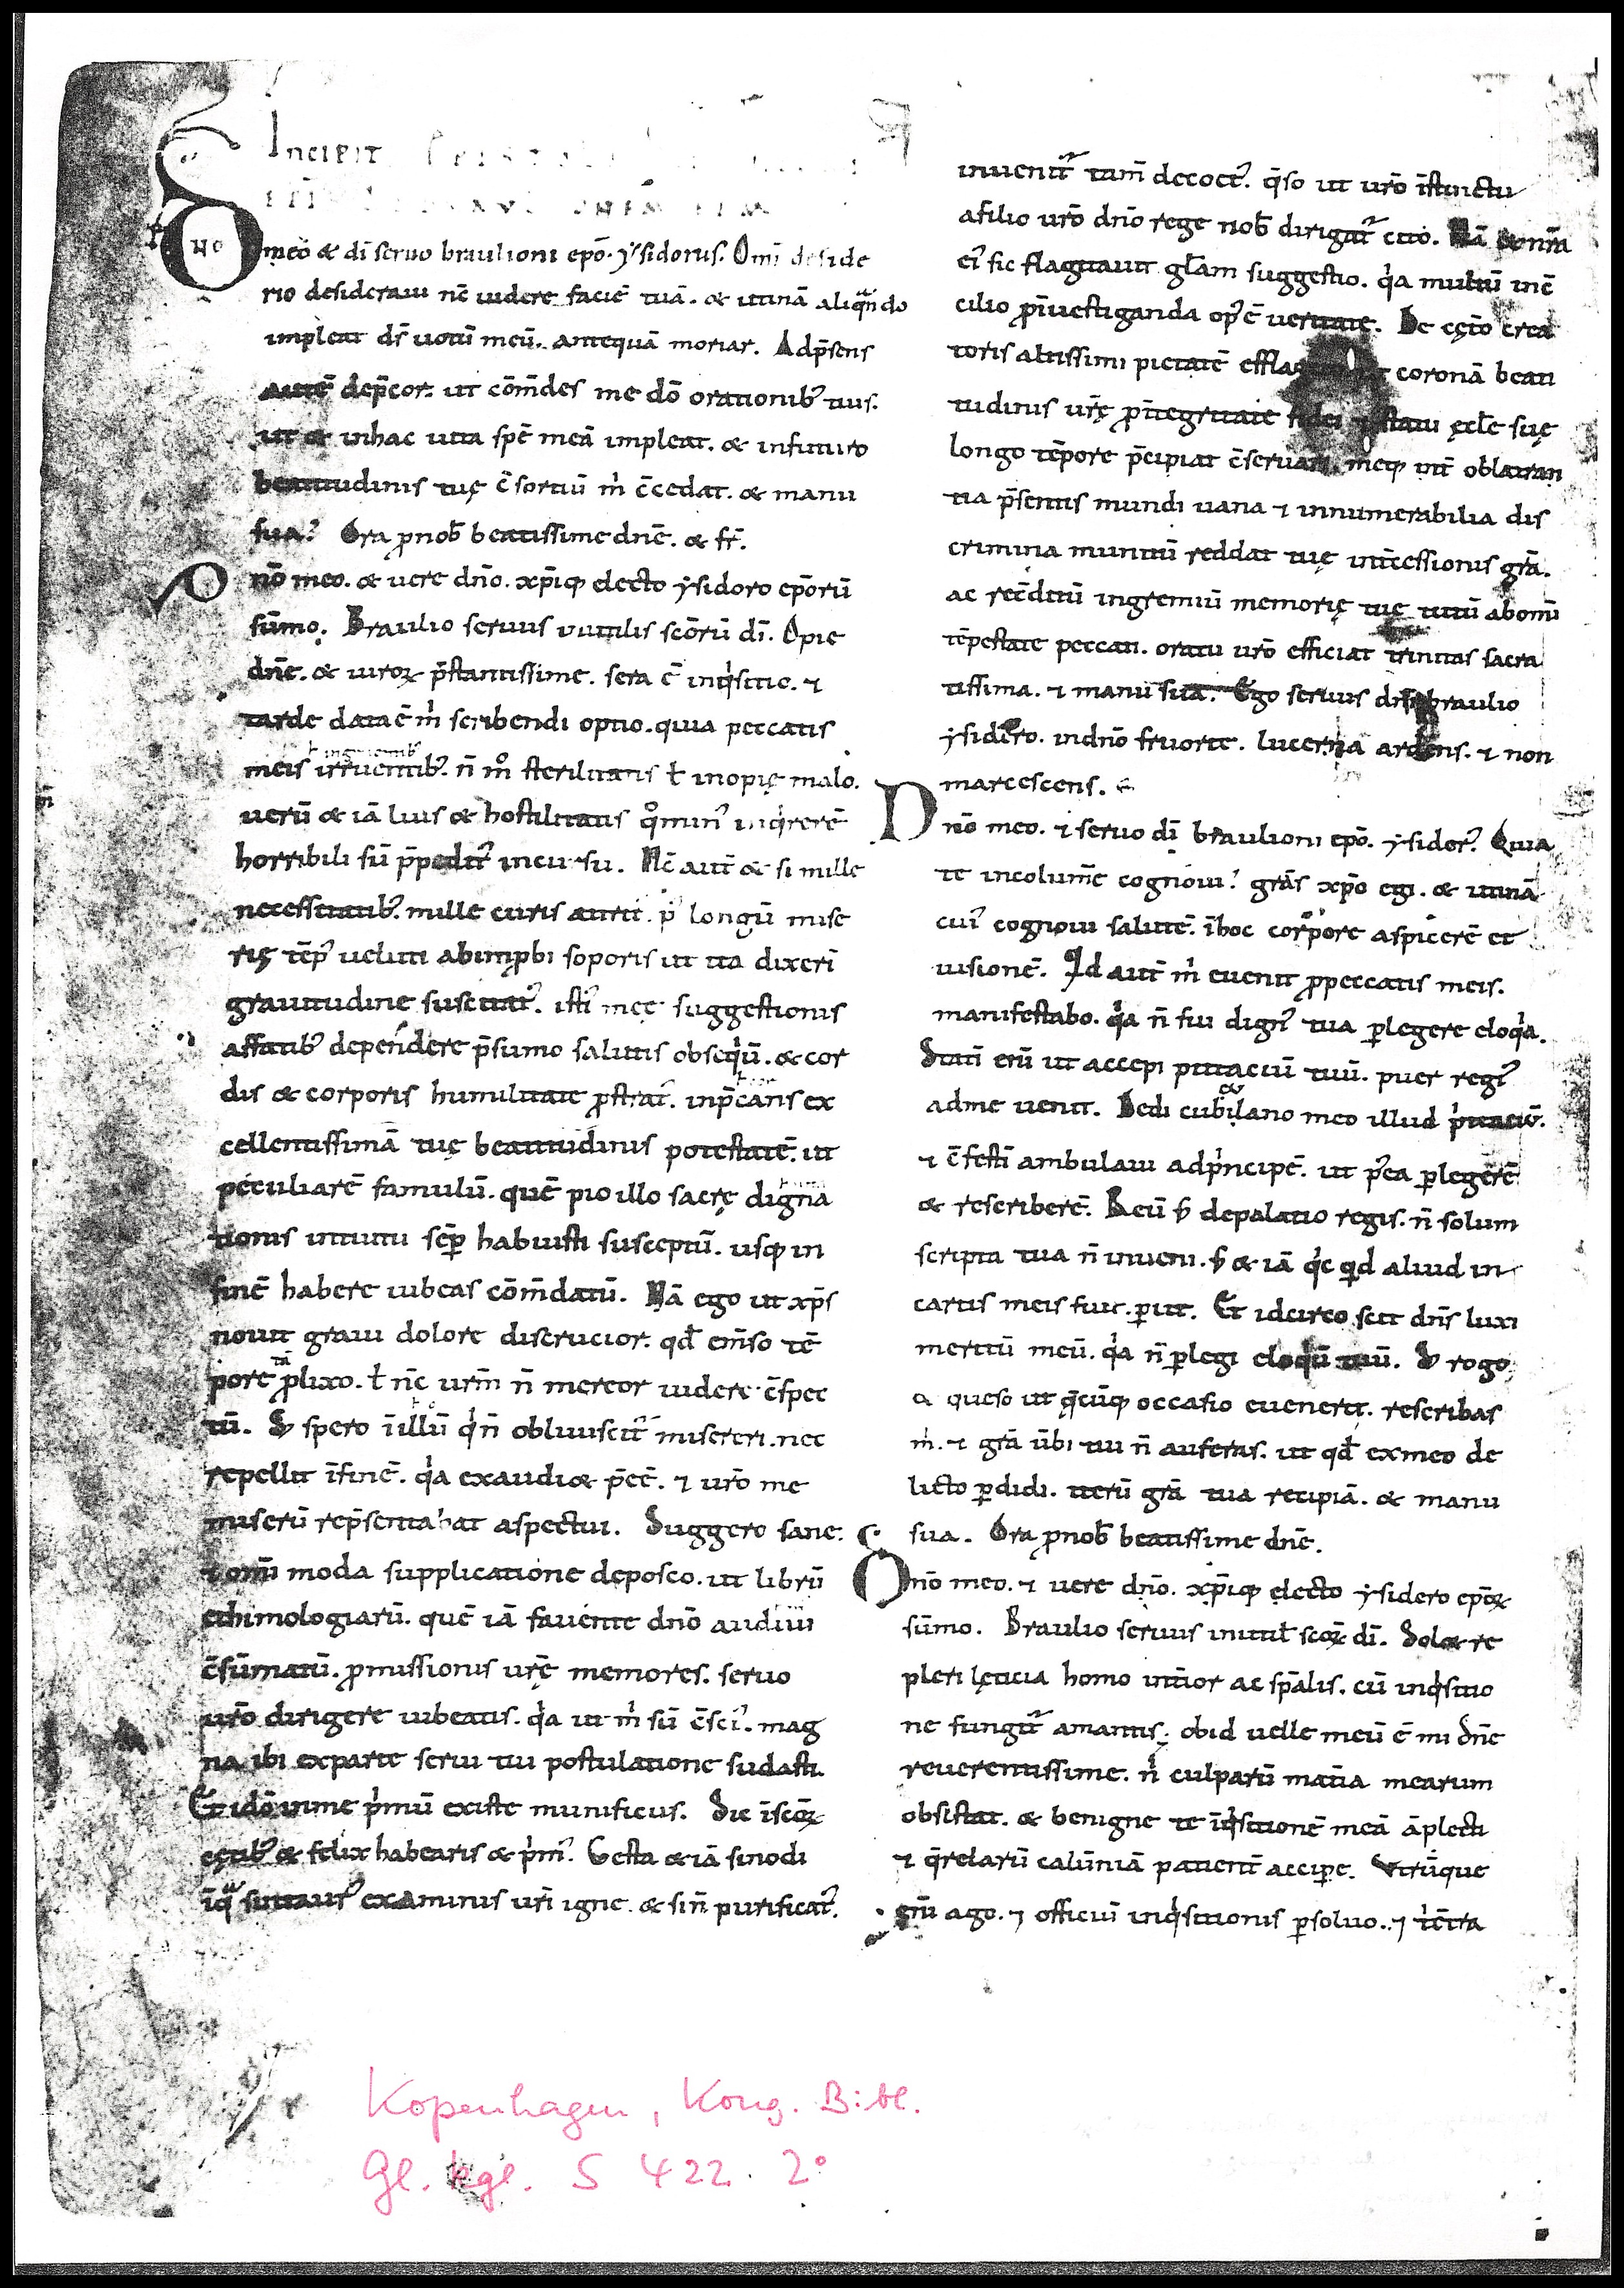 Incipit
DNO
meo & dī seruo braulioni epō. ysidorus. Omī deside
rio desideraui nc̄ uidere faciē tuā. & utinā aliqndo
impleat ds̄ uotū meū. antequā moriar. Adp̄sens
autē dep̄cor. ut cōm̄des me dō orationib; tuis.
ut & inhac uita spē meā impleat. & infuturo
beatitudinis tuę c̄sortiū m̍ c̄cedat. & manu
sua. Ora ꝓnob̄ beatissime dnē. & fr̄.
Dnō meo. & uere dnō. xp̄iq; electo ysidoro epōrū
sūmo. Braulio seruus inutilis scōrū dī. Opie
dnē. & uiroꝝ p̄stantissime. sera ē inq̍sitio. ⁊
tarde data ē m̍ scribendi optio. quia peccatis
meis irruentib;. n̄ mͦ sterilitatis ł inopię malo.
uerū & iā luis & hostilitatis qͦmin᾽ inq̍rerē
horribili sū p̄pedit᾽ incursu. Nc̄ aut̄ & si mille
necessitatib;. mille curis aurit. p᾽ longū mise
rię tēp᾽ ueluti abimꝓbi soporis ut ita dixerī
grauitudine suscitat᾽. isti᾽ meę suggestionis
affatib; dependere p̄sumo salutis obseq̍ū. & cor
dis & corporis humilitate ꝓstrat᾽. inp̄cans ex
cellentissimā tuę beatitudinis potestatē. ut
peculiarē famulū. quē pio illo sacrę digna
tionis intuitu sēꝑ habuisti susceptū. usq; in
finē habere iubeas cōm̄datū. Nā ego ut xp̄s
nouit graui dolore discrucior. qd̄ em̄so tē
pore ꝓlixo. ł nc̄ urm̄ n̄ mereor uidere c̄spec
tū. S; spero īillū q̍ n̄ obliuiscit᾽ misereri. nec
repellit īfinē. q̍a exaudi& p̄cē. ⁊ urō me
miserū rep̄sentabat aspectui. Suggero sane.
⁊ omī moda supplicatione deposco. ut librū
ethimologiarū. quē iā fauente dnō audiui
c̄sūmatū. ꝓmissionis urę̄ memores. seruo
urō dirigere iubeatis. q̍a ut m̍ sū c̄sci᾽. mag
na ibi exparte serui tui postulatione sudasti.
Et idō inme p̍mū existe munificus. Sic īscōꝝ
cętib; & felix habearis & p̍m᾽. Gesta & iā sinodi
īq sintaur᾽ examinis uri igne. & sin̄ purificat᾽.
inuenit᾽ tam̄ decoct᾽. q̄so ut urō īstinctu
afilio urō dnō rege nob̄ dirigat᾽ cito. Nā & nr̄a
ei᾽ sic flagitauit gl̄am suggestio. q̍a multū inc̄
cilio ꝓīuestiganda op᾽ ē ueritate. De cęto crea
toris altissimi pietatē coronā beati
tudinis urę̄ ꝓītegritate fidei & statu ęcl̄e suę
longo tēpore p̄cipiat c̄seruari. meq; int̄ oblatran
tia p̄sentis mundi uana ⁊ innumerabilia dis
crimina munitū reddat tuę int̄cessionis grā.
ac rec̄ditū ingremiū memorię tuę tutū abomī
tēpestate peccati. oratu urō efficiat trinitas sacra
tissima. ⁊ manu sua. Ego seruus dnī braulio
ysidoro. indnō fruorte. lucerna ardens. ⁊ non
marcescens.
Dnō meo. ⁊ seruo dī braulioni epō. ysidor᾽. Quia
te incolumē cognoui. grās xp̄o egi. & utinā
cui᾽ cognoui salutē. īhoc corpore aspicerē et
uisionē. Id aut̄ m̍ euenit ꝓpeccatis meis.
manifestabo. q̍a n̄ fui dign᾽ tua ꝑlegere eloq̍a.
Statī enī ut accepi pitaciū tuū. puer regi᾽
adme uenit. Dedi cubilano meo illud pitaciū.
⁊ c̄festī ambulaui adp̍ncipē. ut p᾽ea ꝑlegerē
& rescriberē. Reū s; depalatio regis. n̄ solum
scripta tua n̄ inueni. s; & iā q̍cq̍d aliud in
cartis meis fuit. ꝑiit. Et idcirco scit dns̄ luxi
meritū meū. q̍a n̄ ꝑlegi eloq̍ū tuū. S; rogo
a queso ut q̄cūq; occasio euenerit. rescribas
m̍. ⁊ grā ūbi tui n̄ auferas. ut qd̄ exmeo de
licto ꝑdidi. iterū grā tua recipiā. & manu
sua. Ora ꝓnob̄ beatissime dnē.
Dnō meo. ⁊ uere dnō. xp̄iq; electo ysidero epōꝝ
sūmo. Braulio seruus inutil̄ scōꝝ dī. Sol& re
pleri lęticia homo int̄ior ac sp̄alis. cū inq̍sitio
ne fungit᾽ amantis. obid uelle meū ē mi dnē
reuerentissime. n̍ culparū mat̄ia mearum
obsistat. & benigne te īq̍sitionē meā āplecti
⁊ q̄relarū calūniā patient̄ accipe. Vtrūque
enī ago. ⁊ officiū inq̍sitionis ꝑsoluo. ⁊ 
Kopenhagen, Kong. Bibl.
Gl. kgl. S 422. 2°